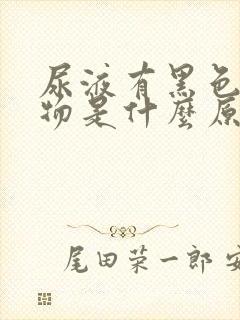 尿液有黑色
物是什麼原
尾田荣一郎 安